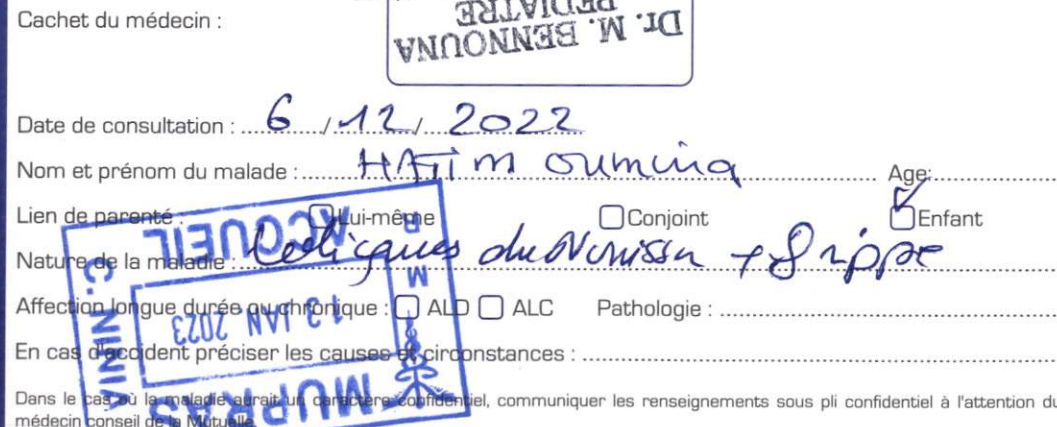 Cachet du médecin :
Dr. M. BENNOUNA
PEDIATRE
Date de consultation : 6 / 12 / 2022
Nom et prénom du malade : HATIM oumina Age:
Lien de parenté : Lui-même Conjoint Enfant
Nature de la maladie : Coliques du Nourisson + Grippe
Affection longue durée ou chronique : ALD ALC Pathologie :
En cas d'accident préciser les causes et circonstances :
Dans le cas où la maladie aurait un caractère confidentiel, communiquer les renseignements sous pli confidentiel à l'attention du
médecin conseil de la Mutuelle
MUPRAS
13 JAN 2023
ACCUEIL